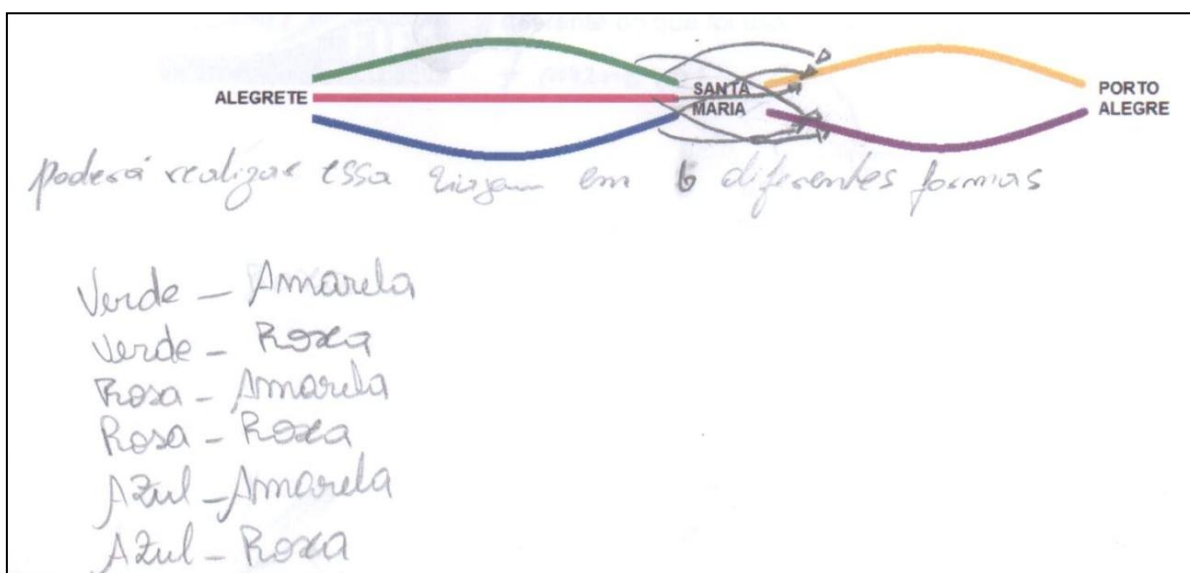 ALEGRETE
SANTA
MARIA
PORTO
ALEGRE
poderá realizar essa viagem em 6 diferentes formas
Verde - Amarela
Verde - Roxa
Rosa - Amarela
Rosa - Roxa
Azul - Amarela
Azul - Roxa